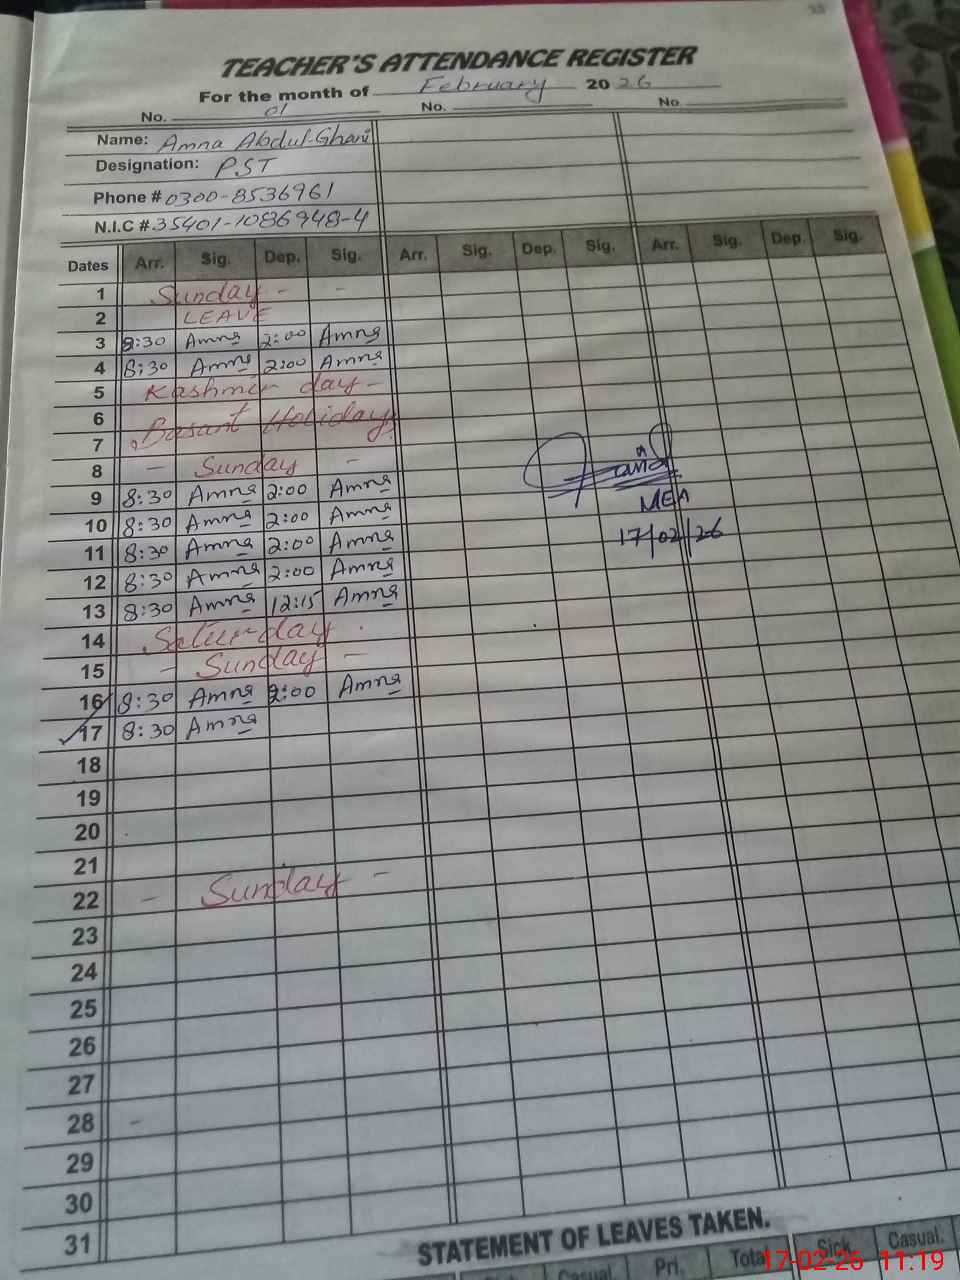 33
TEACHER'S ATTENDANCE REGISTER
For the month of February 2026
No. 01 No. No.
Name: Amna Abdul-Ghani
Designation: PST
Phone # 0300-8536961
N.I.C # 35401-1086948-4
Dates Arr. Sig. Dep. Sig. Arr. Sig. Dep. Sig. Arr. Sig. Dep. Sig.
1 Sunday - -
2 LEAVE
3 8:30 Amna 2:00 Amna
4 8:30 Amna 2:00 Amna
5 Kashmir day -
6 Basant Holidays
7
8 - Sunday -
9 8:30 Amna 2:00 Amna
MEA
10 8:30 Amna 2:00 Amna
17/02/26
11 8:30 Amna 2:00 Amna
12 8:30 Amna 2:00 Amna
13 8:30 Amna 12:15 Amna
14 Saturday
15 - Sunday -
16 8:30 Amna 2:00 Amna
17 8:30 Amna
18
19
20
21
22 - Sunday -
23
24
25
26
27
28 -
29
30
31
STATEMENT OF LEAVES TAKEN.
Casual Pri. Total Sick Casual.
17-02-26 11:19